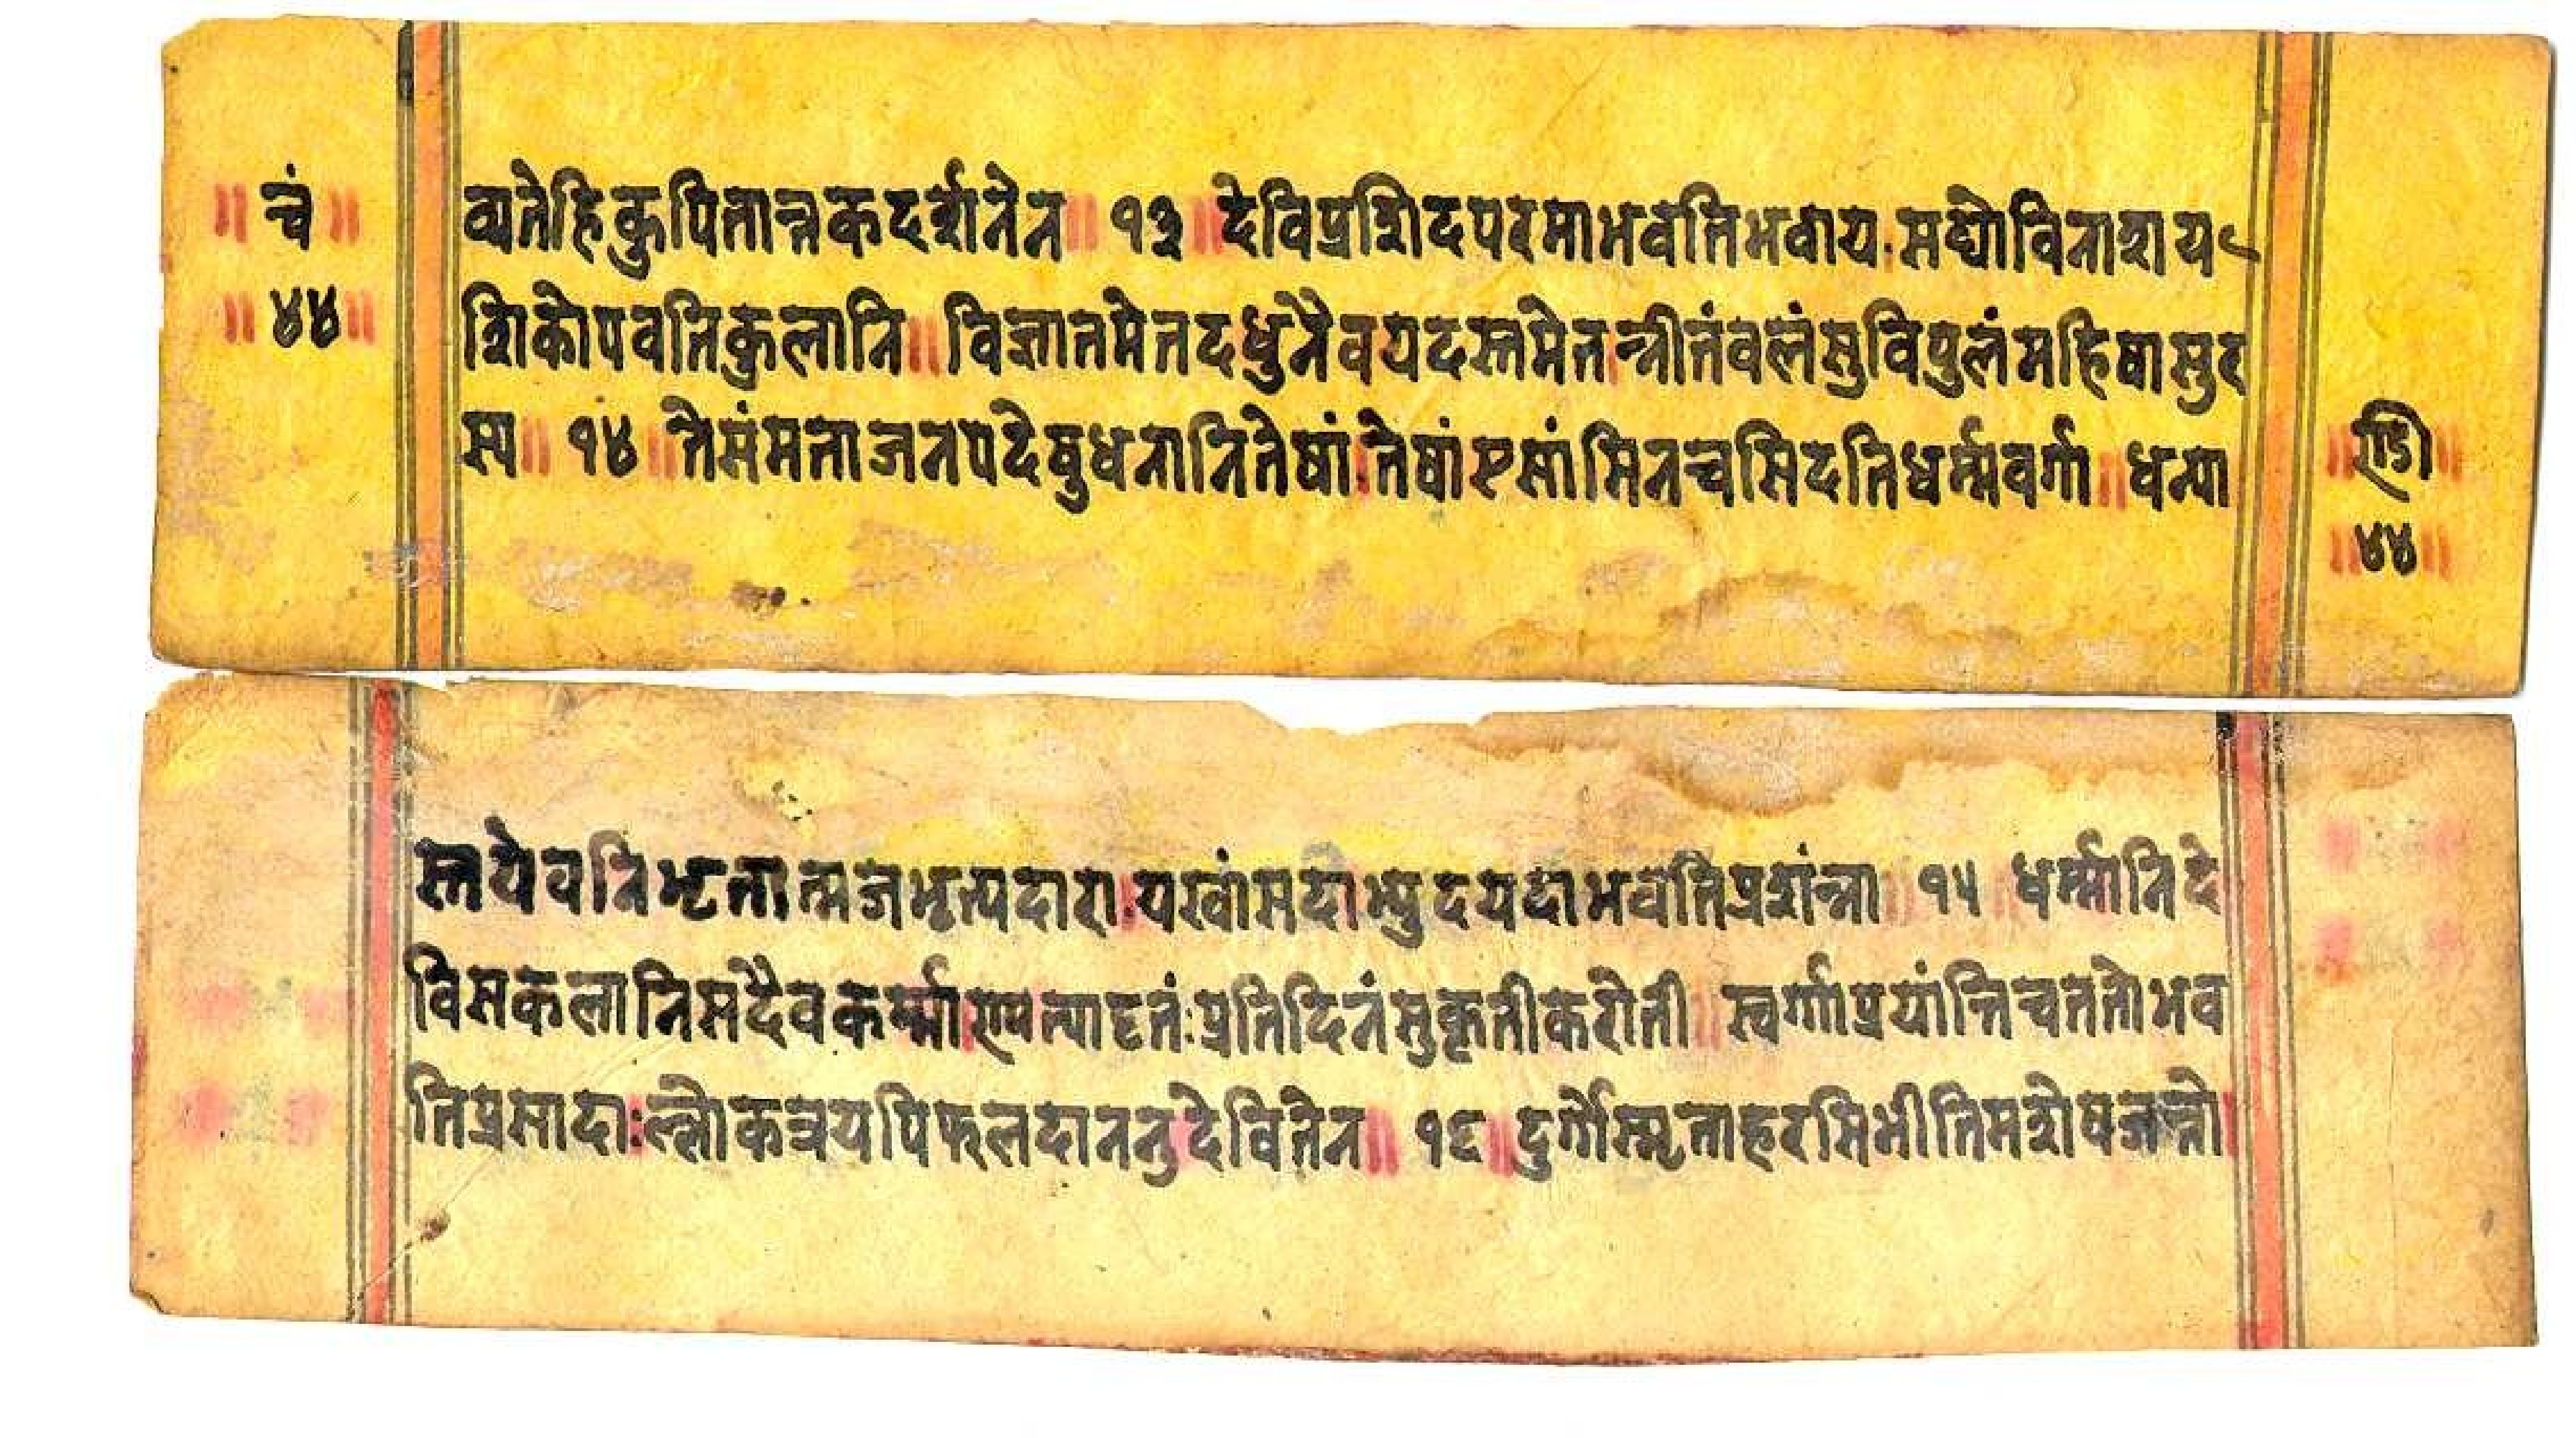 ॥ चं ॥
॥ ४४ ॥
व्यतेहिकुपितान्तकदर्शनेन ॥ १३ ॥ देविप्रशिदपरमाभवतिभवाय सद्योविनाशय
शिकोपवतिकुलानि ॥ विज्ञातमेतदधुनैवयदस्तमेतन्नीतंवलंसुविपुलंमहिषासुर
स्य ॥ १४ ॥ तेसंमताजनपदेषुधनानितेषां तेषांयसांसिनचसिदतिधर्म्मवर्गा ॥ धन्या
॥ ण्डी ॥
॥ ४४ ॥
स्तयेवनिभृतात्मजभृत्यदारा येखांसदाभ्युदयदाभवतिप्रशंन्ना ॥ १५ ॥ धर्म्मानिदे
विसकलानिसदैवकर्म्माण्यत्यादृतंःप्रतिदिनंसुकृतीकरोती ॥ स्वर्गाप्रयांन्तिचततोभव
तिप्रसादाःल्लोकत्रयपिफलदाननुदेवितेन ॥ १६ ॥ दुर्गेस्मृताहरसिभीतिमशेषजन्तो